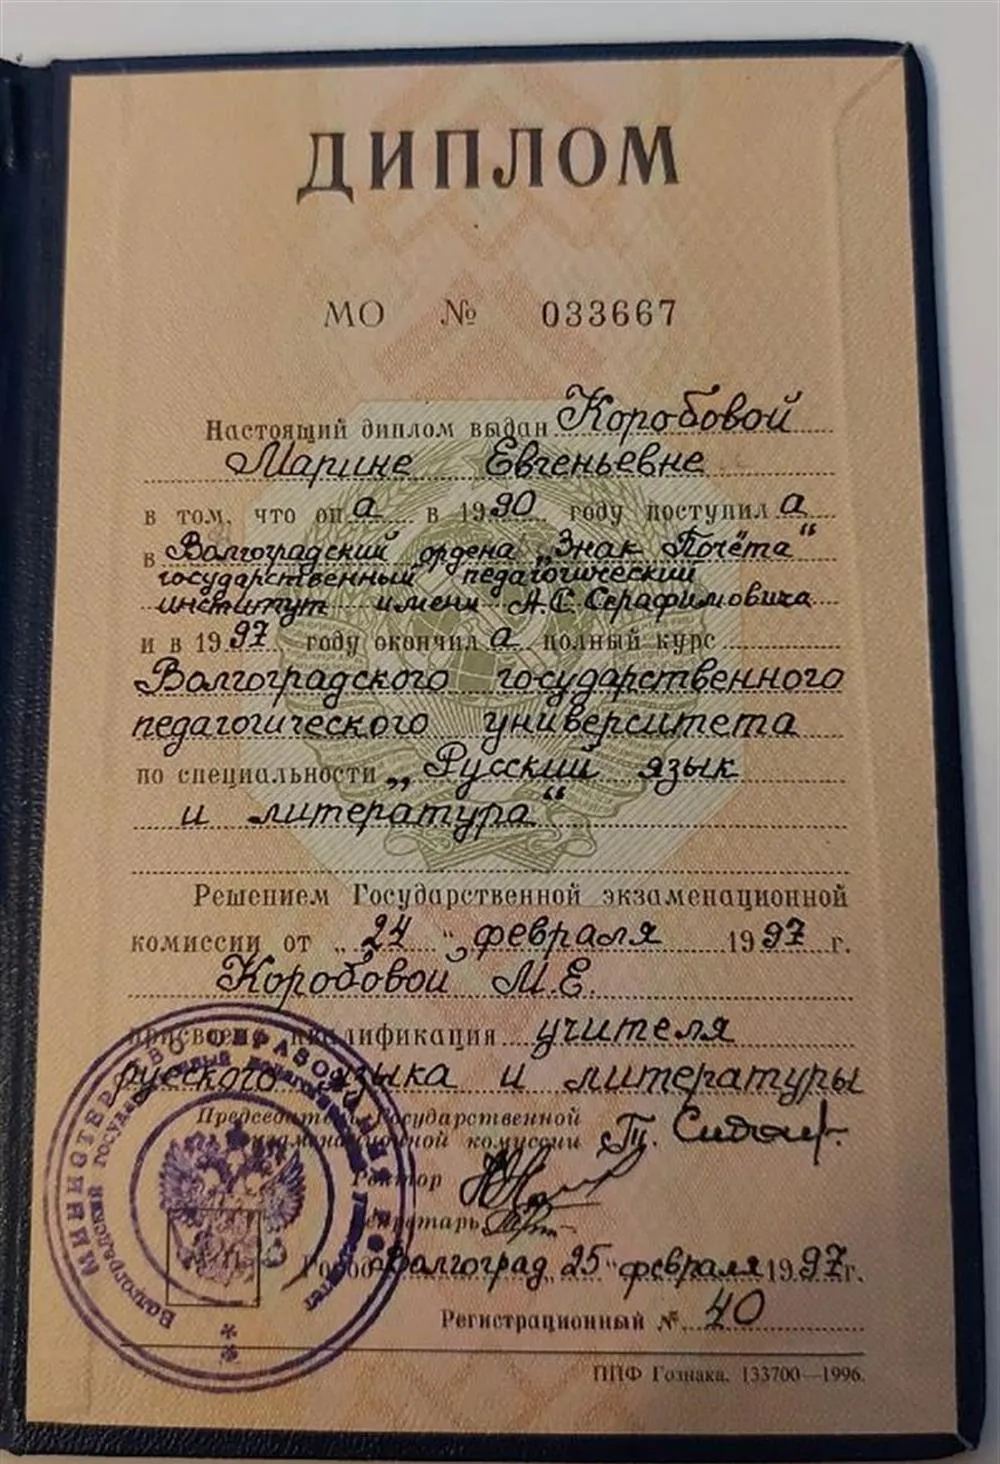 ДИПЛОМ
МО № 033667
Настоящий диплом выдан Коробовой
Марине Евгеньевне
в том, что он а в 1990 году поступил а
в Волгоградский ордена „Знак Почёта“
государственный педагогический
институт имени А.С. Серафимовича
и в 1997 году окончил а полный курс
Волгоградского государственного
педагогического университета
по специальности „Русский язык
и литература“
Решением Государственной экзаменационной
комиссии от „24“ февраля 1997 г.
Коробовой М.Е.
присвоена квалификация учителя
русского языка и литературы
Председатель Государственной
экзаменационной комиссии
Ректор
Секретарь
Город Волгоград „25“ февраля 1997 г.
Регистрационный № 40
ППФ Гознака. 133700—1996.
МИНИСТЕРСТВО ОБРАЗОВАНИЯ
Волгоградский государственный педагогический университет